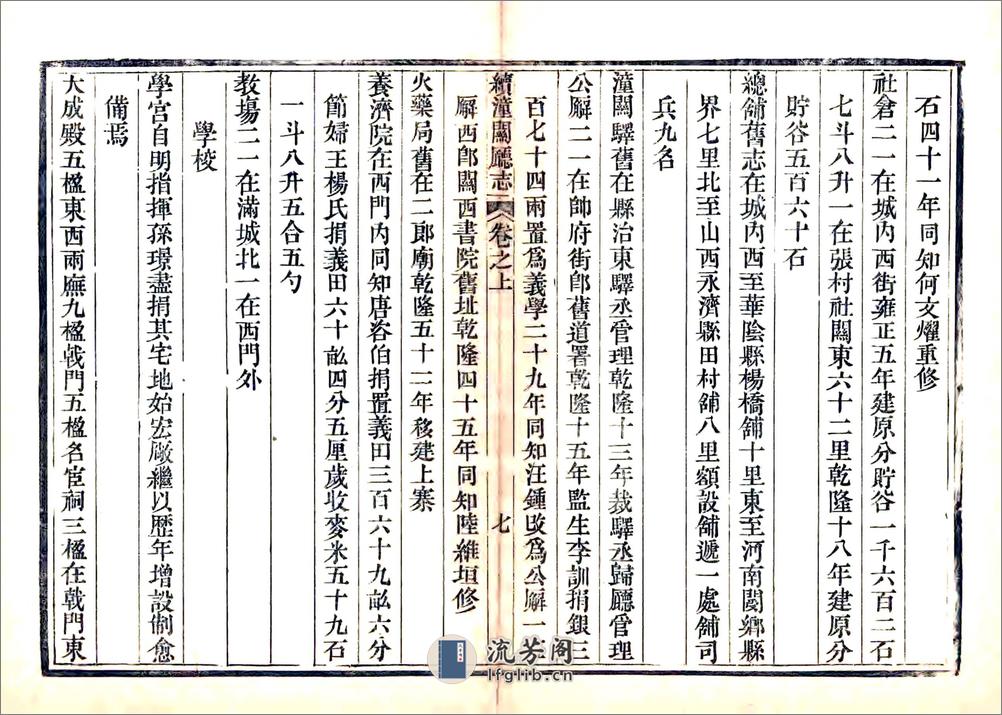 石四十一年同知何文燿重修
社倉二一在城內西街雍正五年建原分貯谷一千六百二石
七斗八升一在張村社關東六十二里乾隆十八年建原分
貯谷五百六十石
總舖舊志在城內西至華陰縣楊橋舖十里東至河南閿鄉縣
界七里北至山西永濟縣田村舖八里額設舖遞一處舖司
兵九名
潼關驛舊在縣治東驛丞官理乾隆十三年裁驛丞歸廳官理
公廨二一在帥府街卽舊道署乾隆十五年監生李訓捐銀三
百七十四兩置爲義學二十九年同知汪鍾攺爲公廨一
續潼關廳志
卷之上
七
廨西卽關西書院舊址乾隆四十五年同知陸維垣修
火藥局舊在二郎廟乾隆五十二年移建上寨
養濟院在西門內同知唐咨伯捐置義田三百六十九畝六分
節婦王楊氏捐義田六十畝四分五厘歲收麥米五十九石
一斗八升五合五勺
教塲二一在滿城北一在西門外
學校
學宮自明指揮孫璟盡捐其宅地始宏厰繼以歷年增設制愈
備焉
大成殿五楹東西兩廡九楹戟門五楹名宦祠三楹在戟門東
流芳阁
lfglib.cn